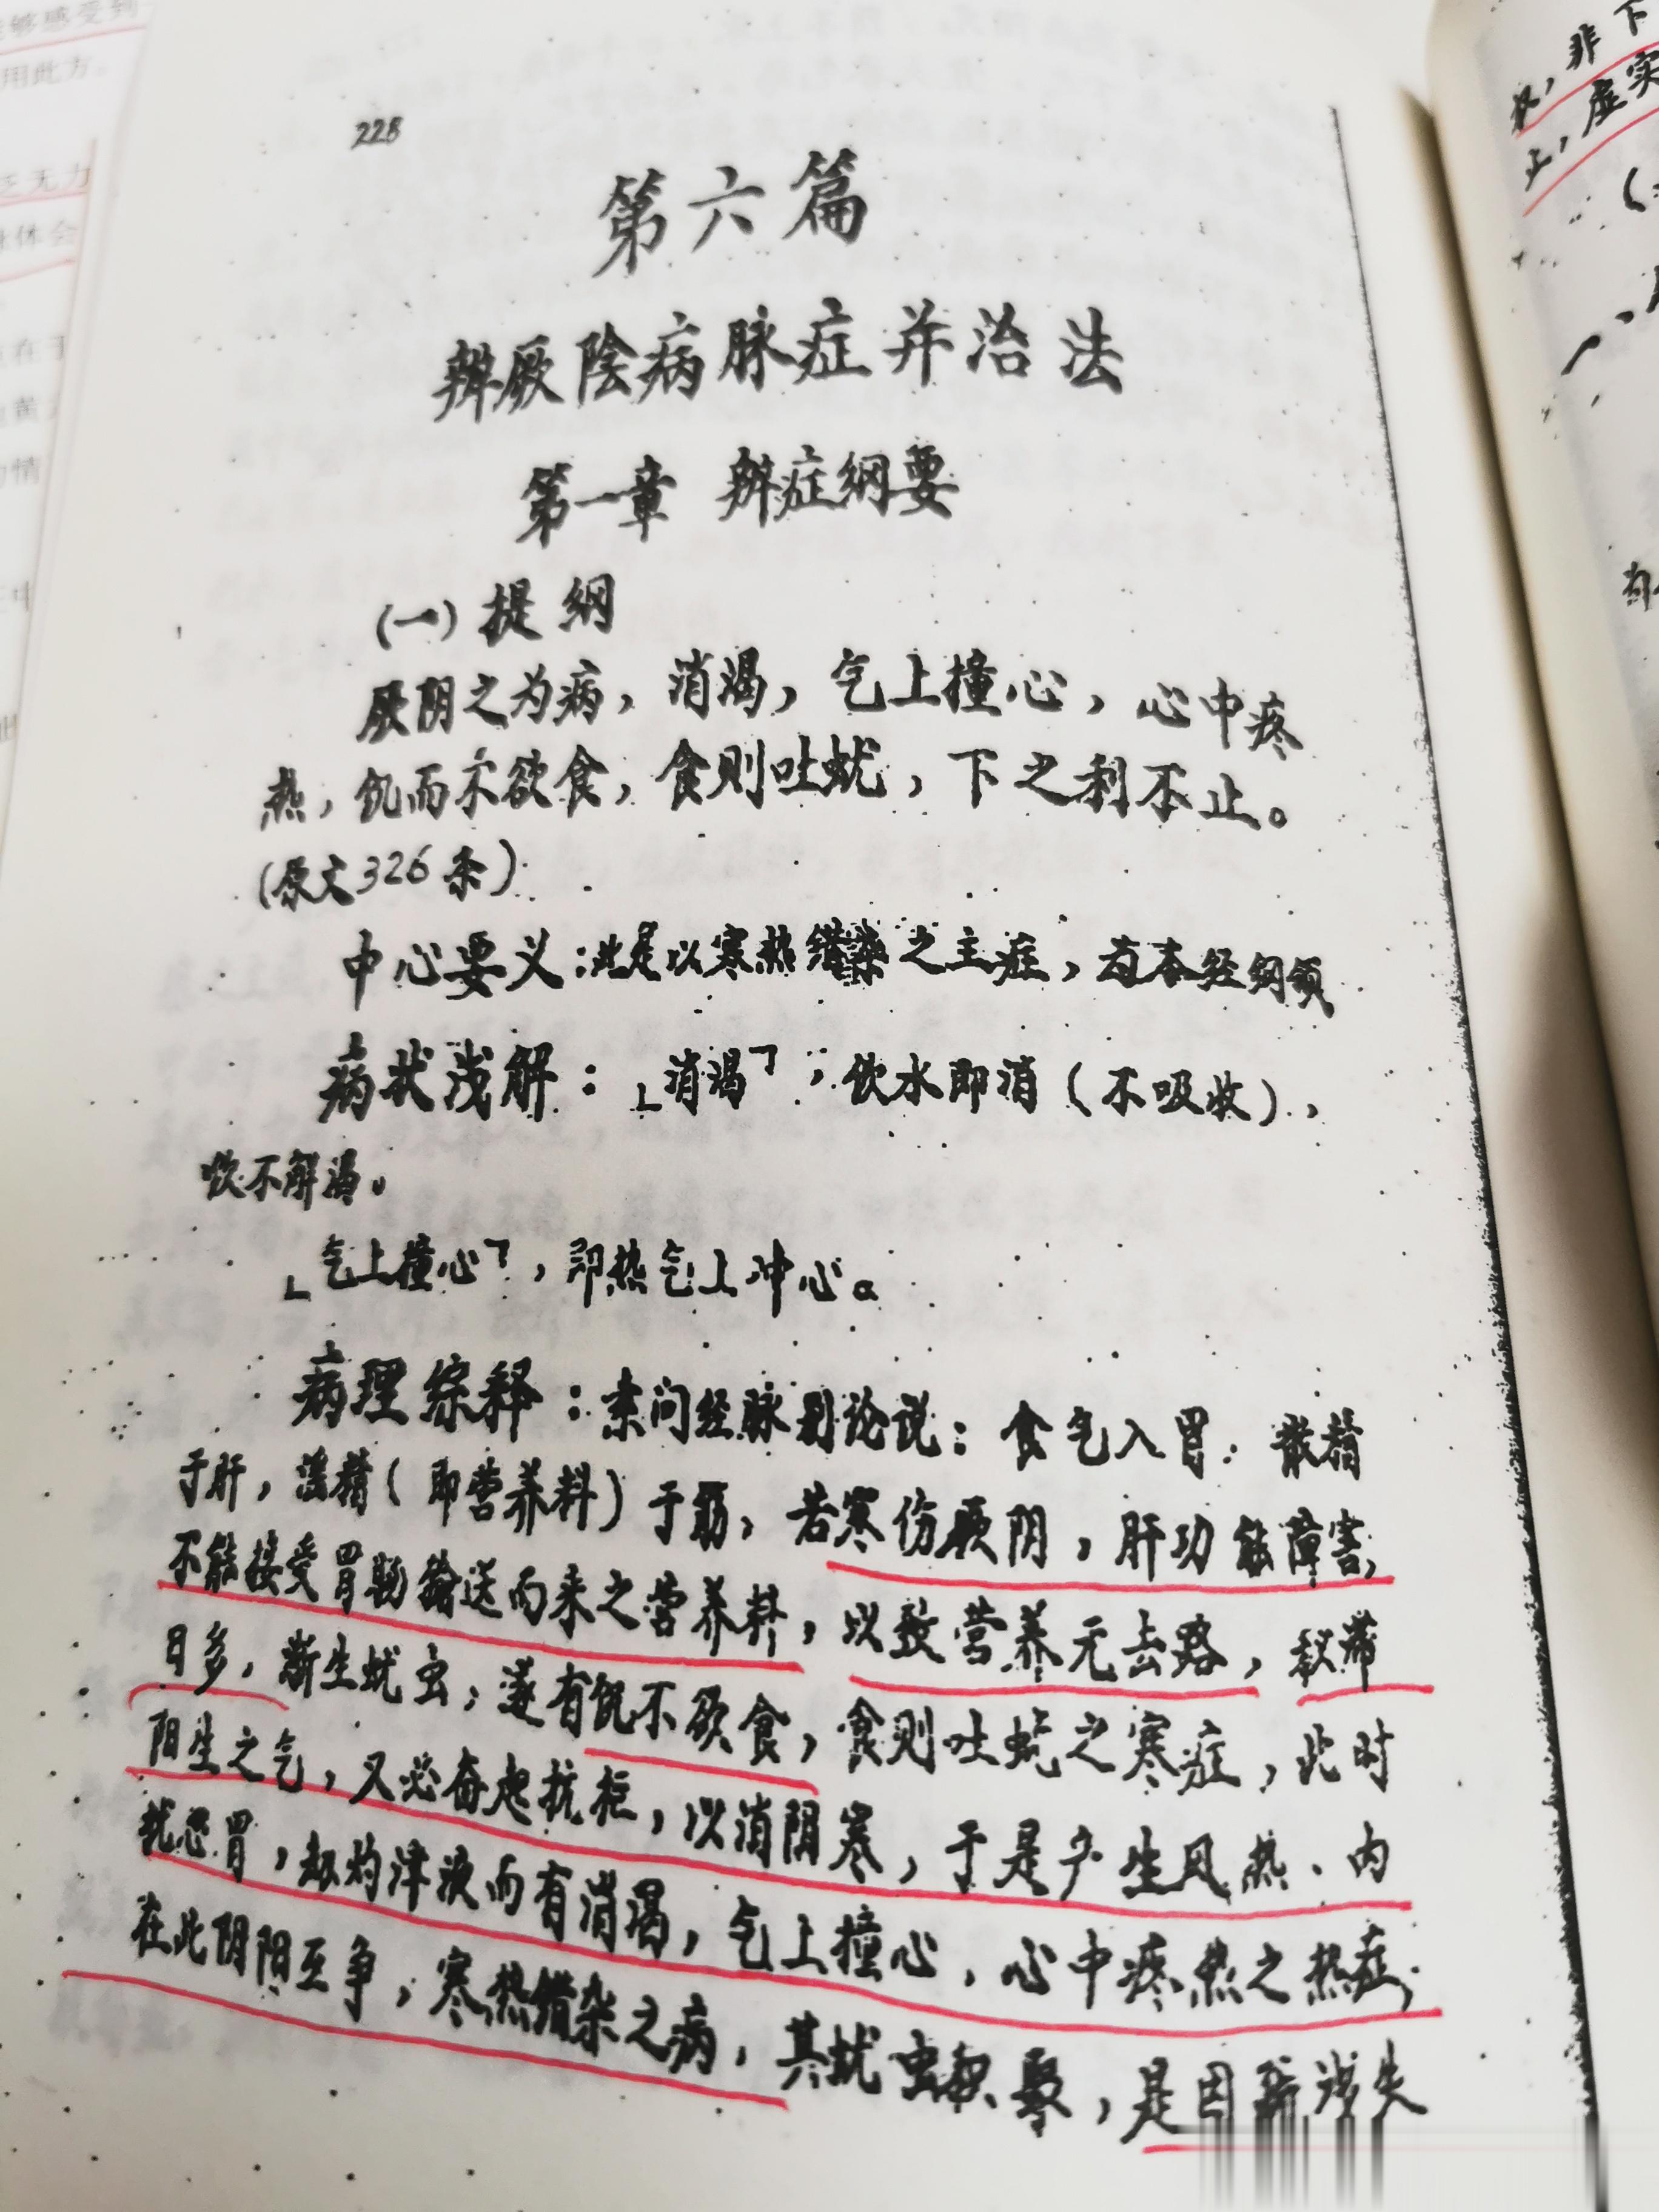 228
第六篇
辨厥陰病脉症并治法
第一章 辨症纲要
(一)提纲
厥阴之为病，消渴，气上撞心，心中疼
热，饥而不欲食，食则吐蚘，下之利不止。
(原文326条)
中心要义：此是以寒热错杂之主症，为本经纲领
病状浅解：「消渴」，饮水即消(不吸收)，
饮不解渴。
「气上撞心」，即热气上冲心。
病理综释：素问经脉别论说：食气入胃，散精
于肝，淫精(即营养料)于筋，若寒伤厥阴，肝功能障害，
不能接受胃肠输送而来之营养料，以致营养无去路，积滞
日多，渐生蚘虫；遂有饥不欲食，食则吐蚘之寒症，此时
阳生之气，又必奋起抗拒，以消阴寒，于是产生风热、内
扰 胃，却灼津液而有消渴，气上撞心，心中疼热之热症；
在此阴阳互争，寒热错杂之病，其扰虫积聚，是因 失
够感受到
用此方。
乏无力
体会
在于
情
，非下
止，虚实